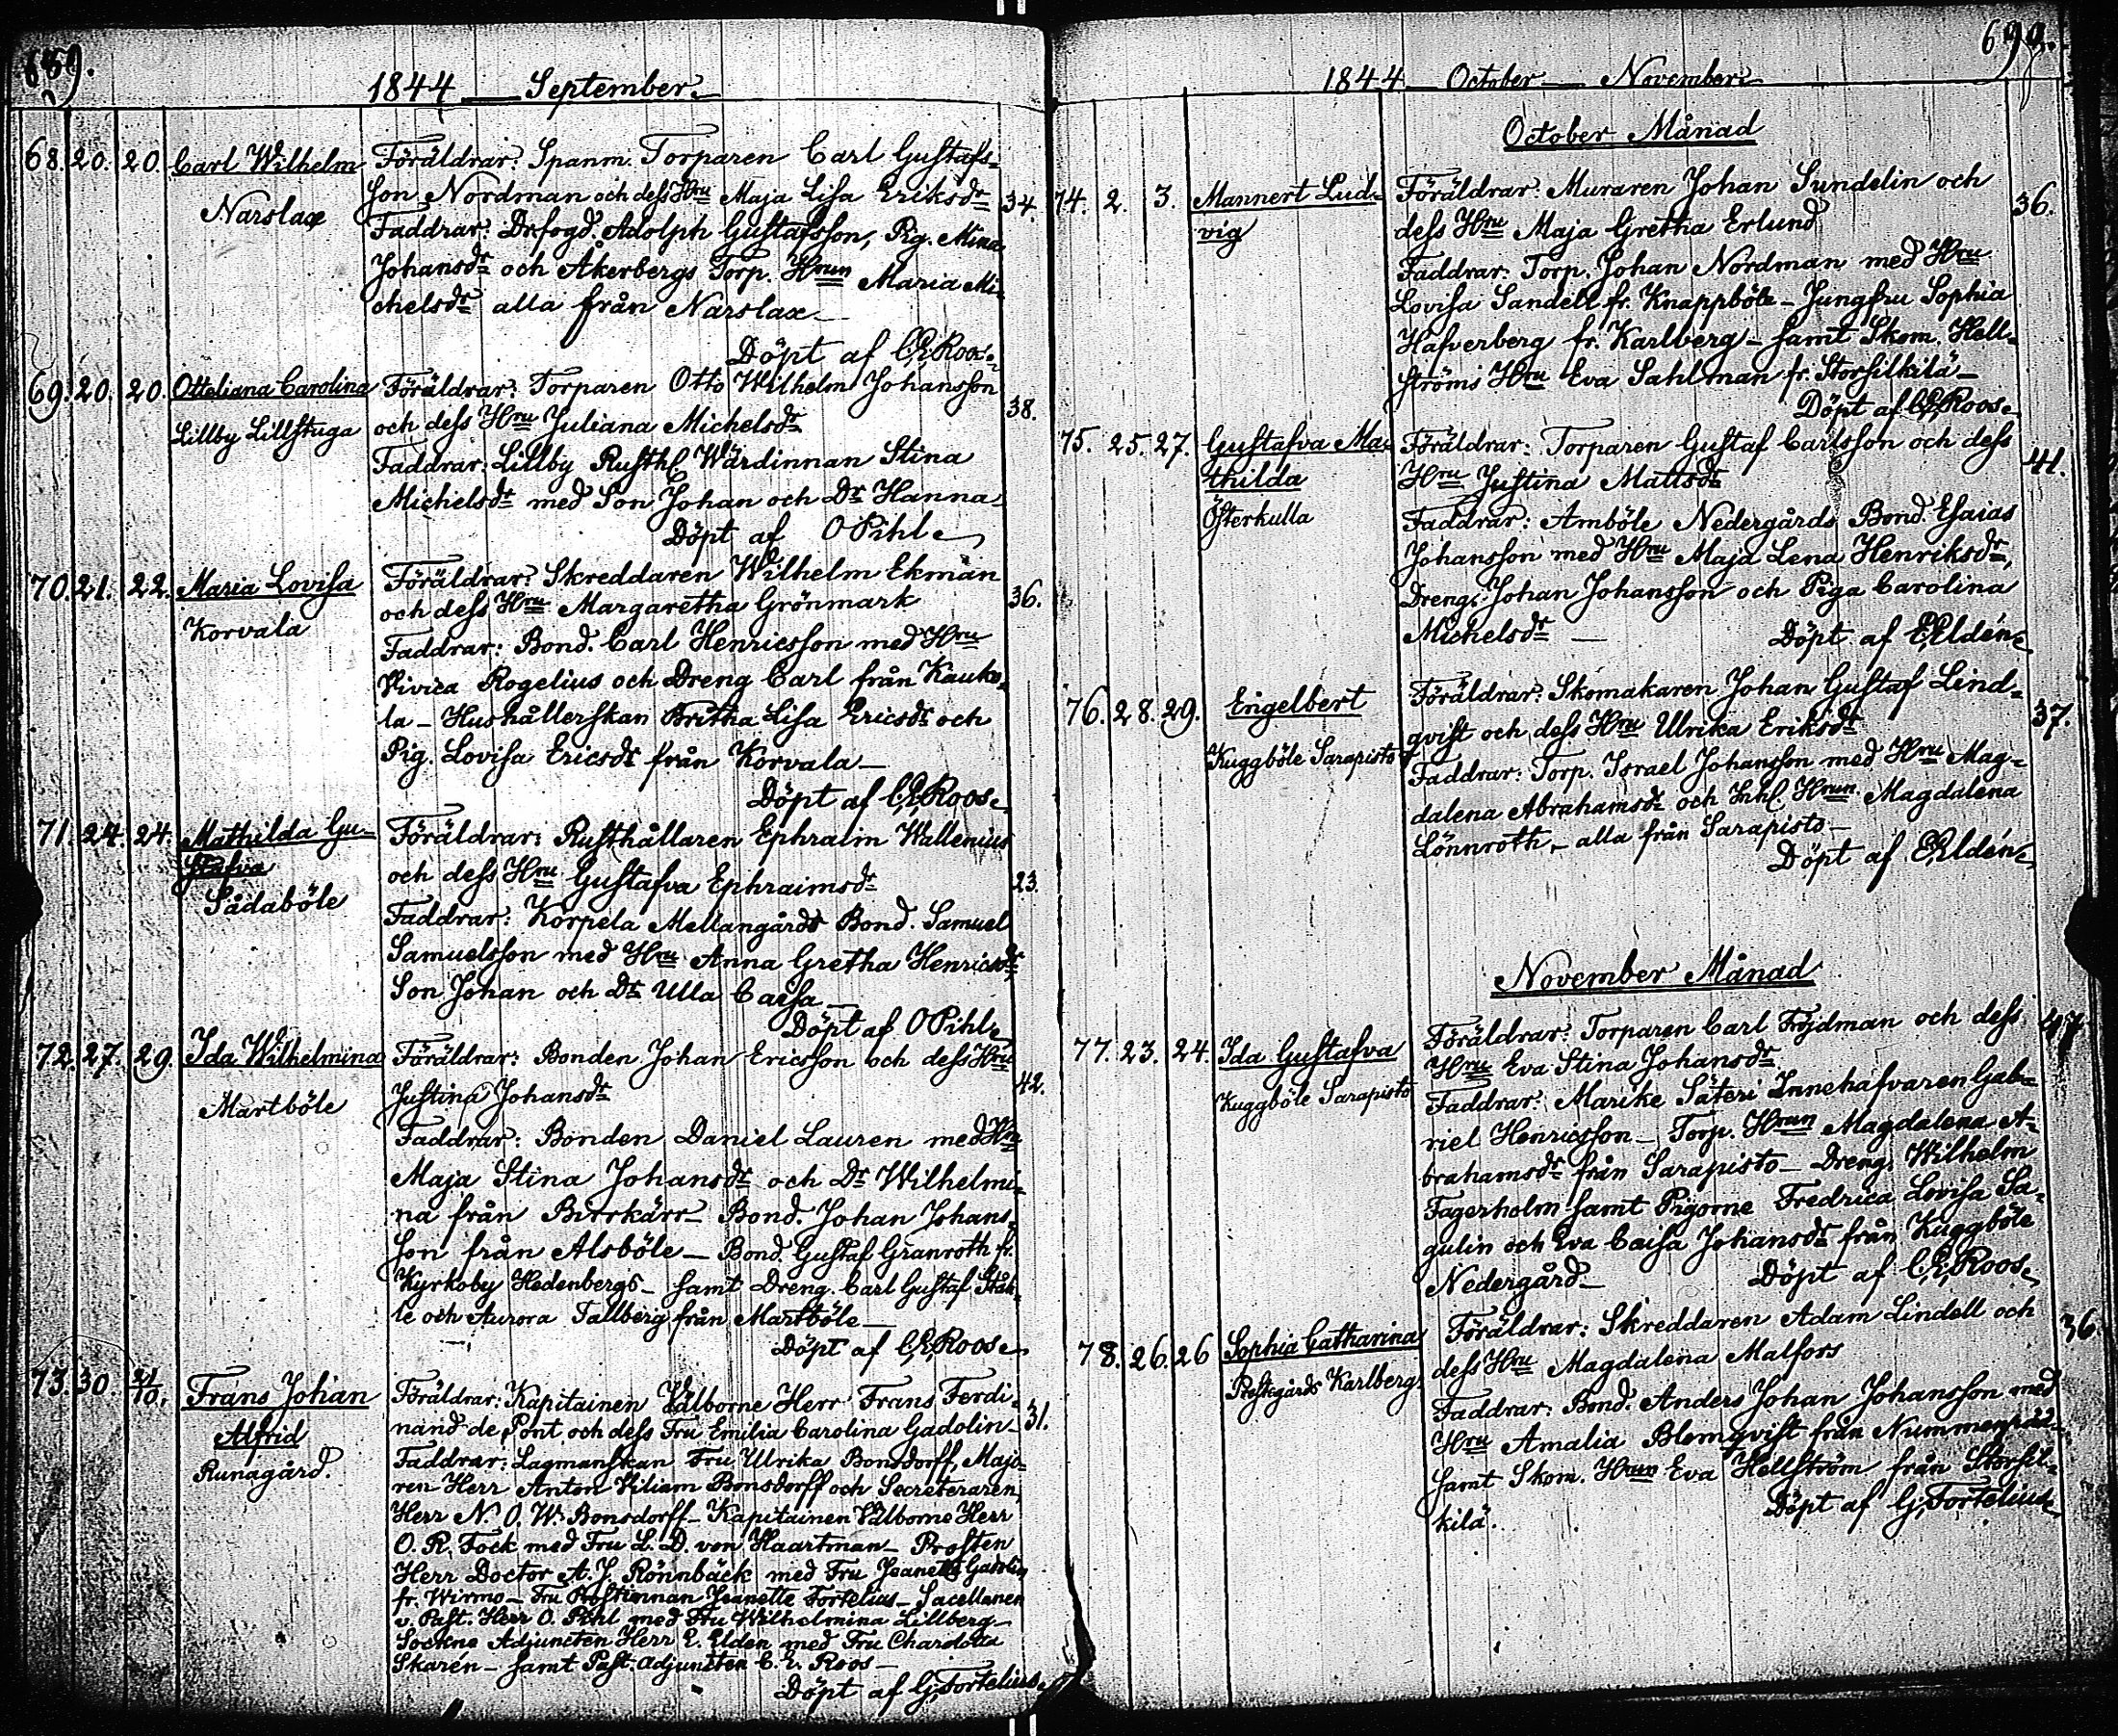 689.
1844 September.
68. 20. 20. Carl Wilhelm
Narslax
Föräldrar: Spanm. Torparen Carl Gustafs=
son Nordman och dess Hru Maja Lisa Eriksdr
34.
Faddrar: Dr.fogd. Adolph Gustafsson, Pig. Mina
Johansdr och Åkerbergs Torp. Hrun Maria Mi=
chelsdr alla från Narslax
Döpt af C.E.Roos.
69. 20. 20. Otteliana Carolina
Lillby Lillstuga
Föräldrar: Torparen Otto Wilhelm Johansson
och dess Hru Juliana Michelsdr
38.
Faddrar: Lillby Rusth. Wärdinnan Stina
Michelsdr med Son Johan och Dr Hanna
Döpt af O Pihl
70. 21. 22. Maria Lovisa
Korvala
Föräldrar: Skreddaren Wilhelm Ekman
och dess Hru Margaretha Grönmark
36.
Faddrar: Bond. Carl Henricsson med Hru
Vivica Rogelius och Dreng Carl från Kauko=
la – Hushållerskan Britha Lisa Ericsdr och
Pig. Lovisa Ericsdr från Korvala –
Döpt af C.E.Roos.
71. 24. 24. Mathilda Gu=
stafva
Sådaböle
Föräldrar: Rusthållaren Ephraim Wallenius
och dess Hru Gustafva Ephraimsdr
23.
Faddrar: Korpela Mellangårds Bond. Samuel
Samuelsson med Hru Anna Gretha Henricsdr
Son Johan och Dr Ulla Caisa –
Döpt af O Pihl
72. 27. 29. Ida Wilhelmina
Martböle
Föräldrar: Bonden Johan Ericsson och dess Hru
Justina Johansdr
42.
Faddrar: Bonden Daniel Lauren med Hru
Maja Stina Johansdr och Dr Wilhelmi=
na från Birrkärr – Bond. Johan Johans=
son från Alsböle – Bond. Gustaf Granroth fr.
Kyrkoby Hedenbergs – samt Dreng. Carl Gustaf Ståh=
le och Aurora Tallberg från Martböle –
Döpt af C.E.Roos.
73. 30. /10. Frans Johan
Alfrid
Runagård.
Föräldrar: Kapitainen Välborne Herr Frans Ferdi=
nand de Pont och dess Fru Emilia Carolina Gadolin –
31.
Faddrar: Lagmanskan Fru Ulrika Bonsdorff, Majo=
ren Herr Anton Viliam Bonsdorff och Secreteraren,
Herr N. O. W. Bonsdorff – Kapitainen Välborne Herr
O. R. Fock med Fru L. D. von Haartman – Prosten
Herr Doctor A. J. Rönnbäck med Fru Jeanette Gadolin
fr. Wirmo – Fru Prostinnan Jeanette Fortelius – Sacellanen
v. Past. Herr O. Pihl med Fru Wilhelmina Lillberg –
Sockne Adjuncten Herr E. Elden med Fru Chardotta
Skarén – samt Past. Adjuncten C. E. Roos –
Döpt af G. Fortelius.
690.
1844 October – November.
October Månad
74. 2. 3. Mannert Lud=
vig
Föräldrar: Muraren Johan Sundelin och
dess Hru Maja Gretha Erlund
36.
Faddrar: Torp. Johan Nordman med Hru
Lovisa Sandell fr. Knappböle – Jungfru Sophia
Hafverberg fr. Karlberg – samt Skom. Hell=
ströms Hru Eva Sahlman fr. Storsilkilä –
Döpt af C.E.Roos.
75. 25. 27. Gustafva Ma=
thilda
Österkulla
Föräldrar: Torparen Gustaf Carlsson och dess
Hru Justina Mattsdr
41.
Faddrar: Amböle Nedergårds Bond. Esaias
Johansson med Hru Maja Lena Henriksdr,
Dreng. Johan Johansson och Piga Carolina
Michelsdr – Döpt af E.Eldén
76. 28. 29. Engelbert
Kuggböle Sarapisto
Föräldrar: Skomakaren Johan Gustaf Lind=
qvist och dess Hru Ulrika Eriksdr
37.
Faddrar: Torp. Israel Johansson med Hru Mag=
dalena Abrahamsdr och Inh. Hrun Magdalena
Lönnroth, – alla från Sarapisto –
Döpt af E.Eldén
November Månad
77. 23. 24. Ida Gustafva
Kuggböle Sarapisto
Föräldrar: Torparen Carl Fröjdman och dess
Hru Eva Stina Johansdr
47
Faddrar: Marike Säteri Innehafvaren Gab=
riel Henricsson – Torp. Hrun Magdalena A=
brahamsdr från Sarapisto – Dreng. Wilhelm
Fagerholm samt Pigorne Fredrica Lovisa Sa=
gulin och Eva Caisa Johansdr från Kuggböle
Nedergård – Döpt af C.E.Roos.
78. 26. 26 Sophia Catharina
Prestegårds Karlberg.
Föräldrar: Skreddaren Adam Lindell och
dess Hru Magdalena Malfors
36
Faddrar: Bond. Anders Johan Johansson med
Hru Amalia Blomqvist från
samt Skom. Hrun Eva Hellström från Storsil=
kilä. Döpt af G. Fortelius